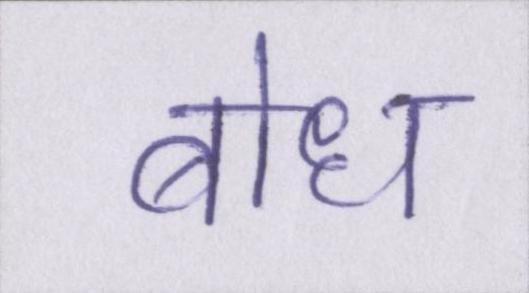 बोध